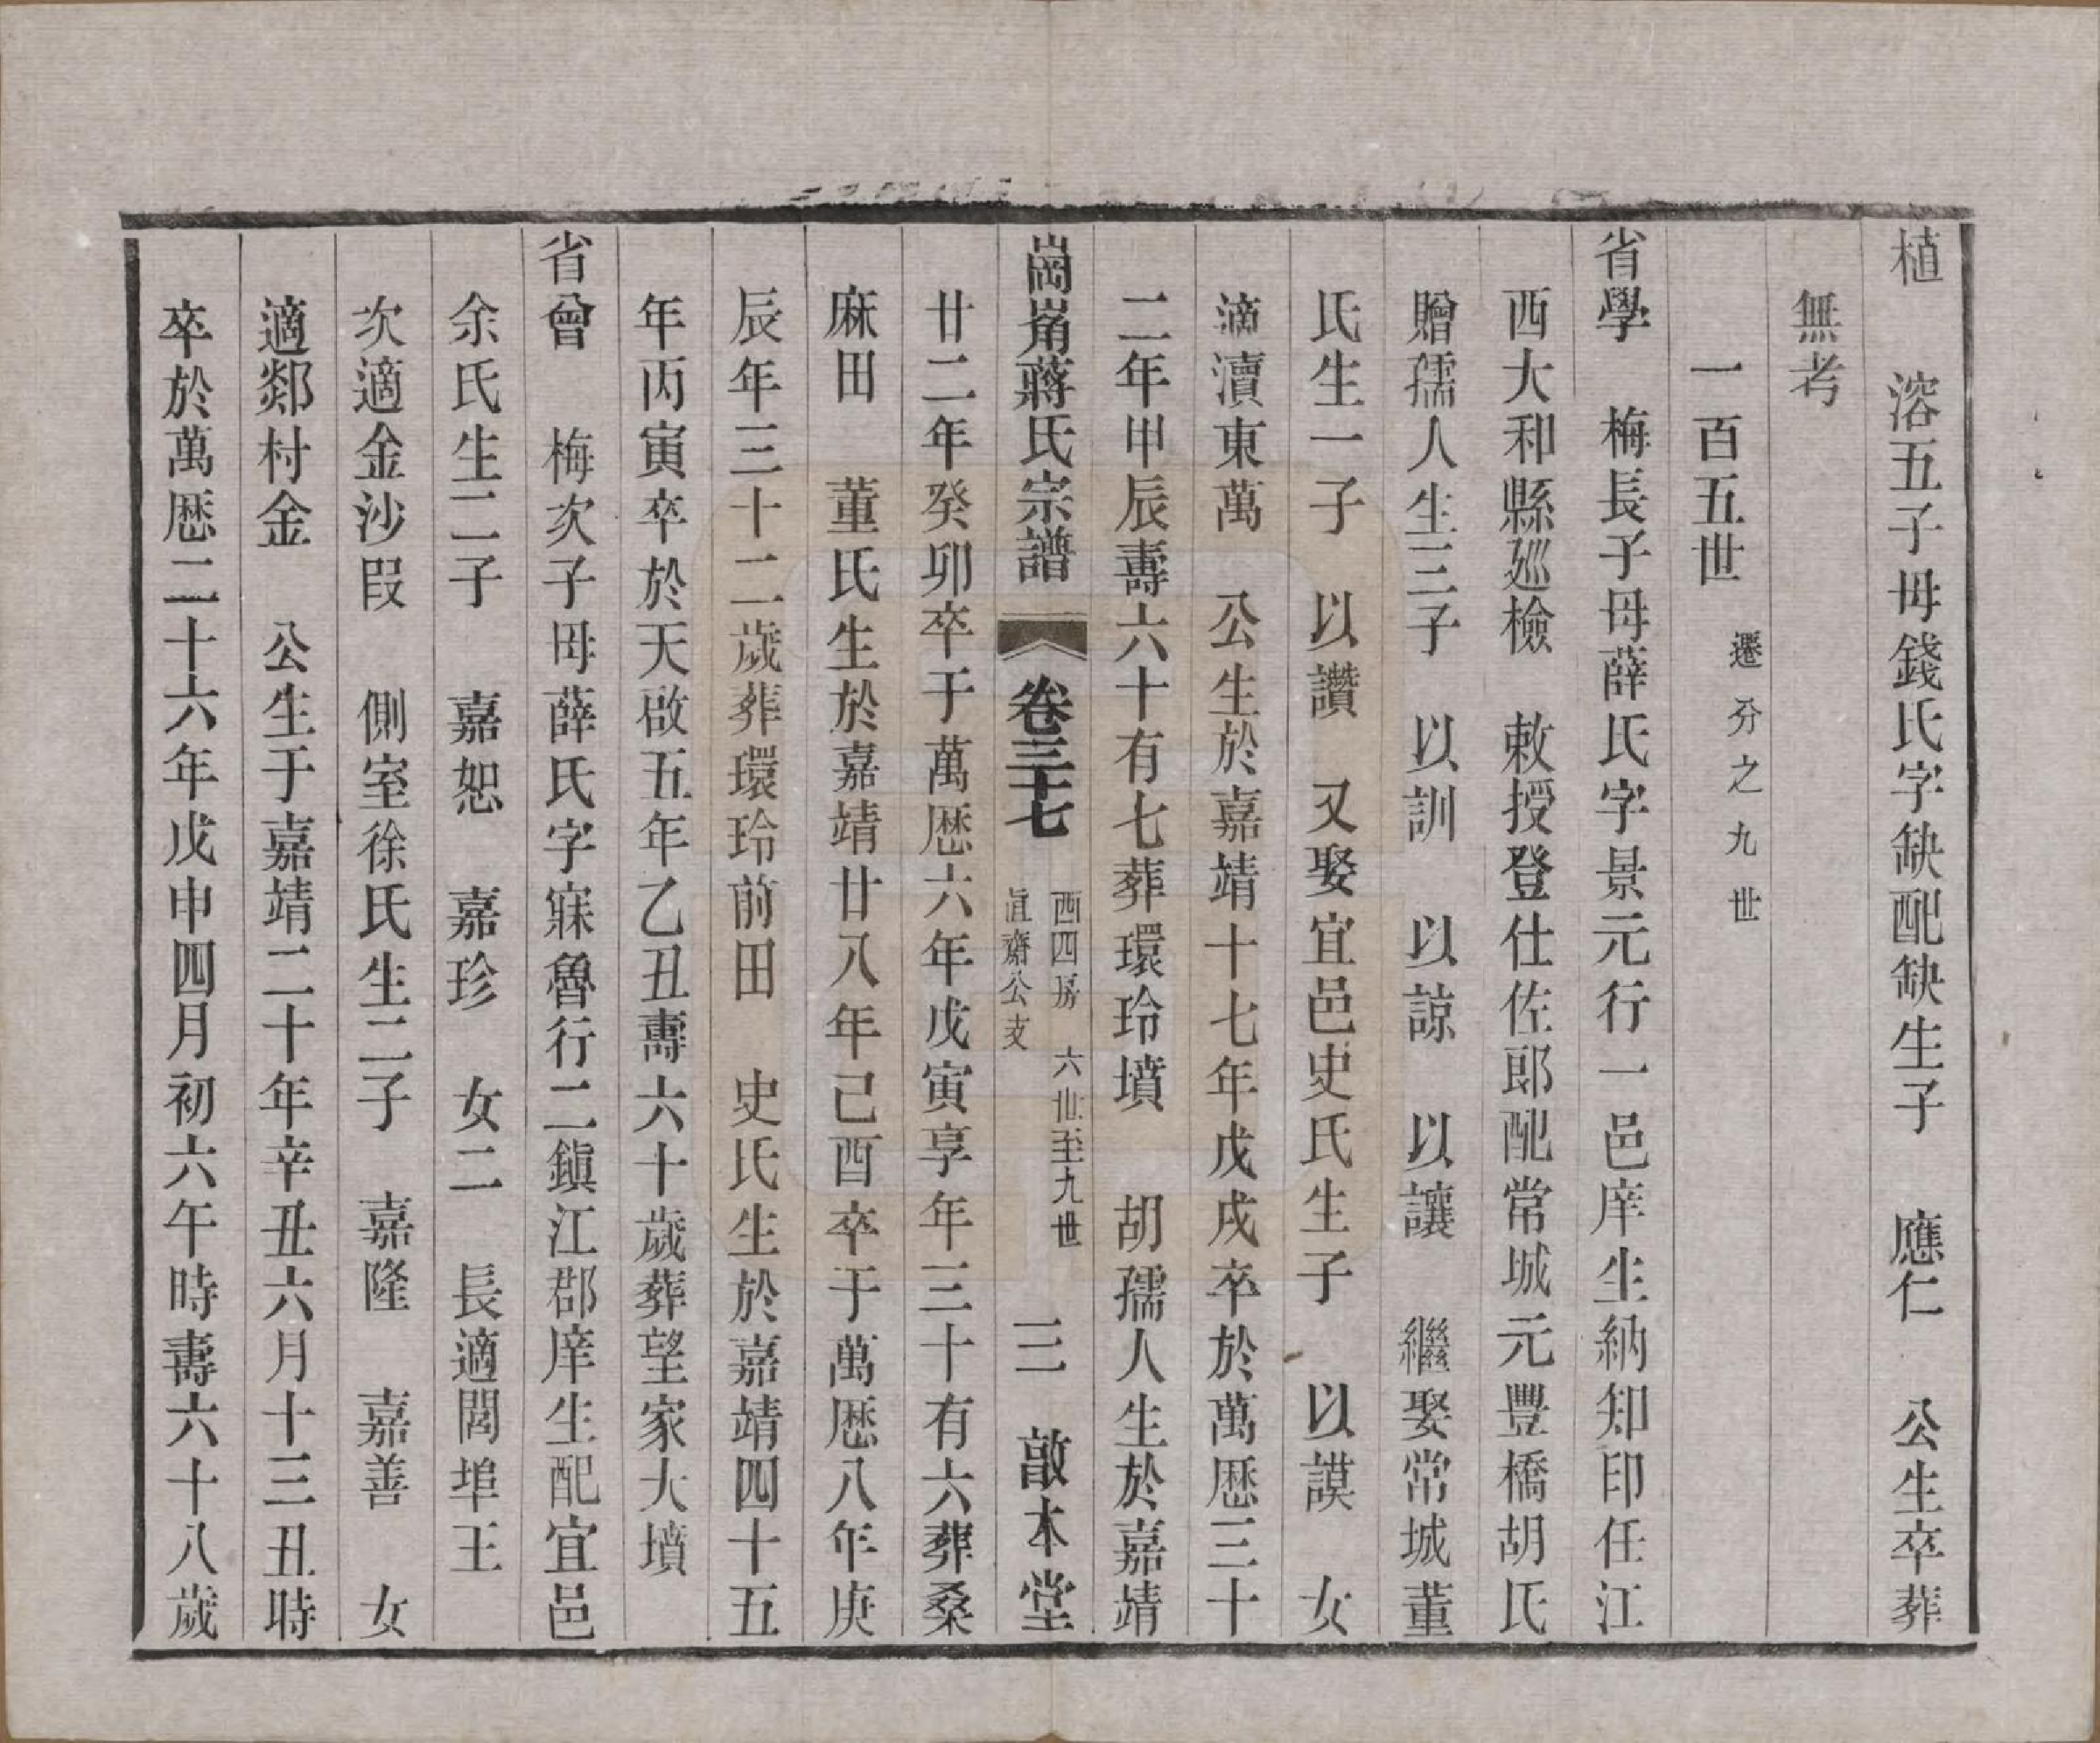 植　溶五子母錢氏字缺配缺生子　應仁　公生卒葬
無考
一百五世　遷分之九世
省學　梅長子母薛氏字景元行一邑庠生納知印任江
西大和縣廵檢　敕授登仕佐郎配常城元豐橋胡氏
贈孺人生三子　以訓　以諒　以讓　繼娶常城董
氏生一子　以讚　又娶宜邑史氏生子　以謨　女
滴瀆東萬　公生於嘉靖十七年戊戌卒於萬歷三十
二年甲辰壽六十有七葬環玲墳　胡孺人生於嘉靖
崗𡵆蔣氏宗譜　卷三十七　西四房　六世至九世　直齋公支　三　敬本堂
廿二年癸卯卒于萬歷六年戊寅享年三十有六葬桑
麻田　董氏生於嘉靖廿八年己酉卒于萬歷八年庚
辰年三十二歲葬環玲前田　史氏生於嘉靖四十五
年丙寅卒於天啟五年乙丑壽六十歲葬望家大墳
省曾　梅次子母薛氏字寐魯行二鎮江郡庠生配宜邑
余氏生二子　嘉恕　嘉珍　女二　長適閭埠王
次適金沙叚　側室徐氏生二子　嘉隆　嘉善　女
適鄒村金　公生于嘉靖二十年辛丑六月十三丑時
卒於萬歷二十六年戊申四月初六午時壽六十八歲